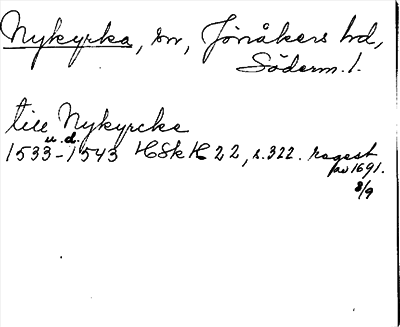 Nykyrka, sn, Jönåkers hd,
Söderm. l.
till Nykyrcke
u. d.
1533-1543 HSkH 22, s. 322. regest
av 1691.
8/9